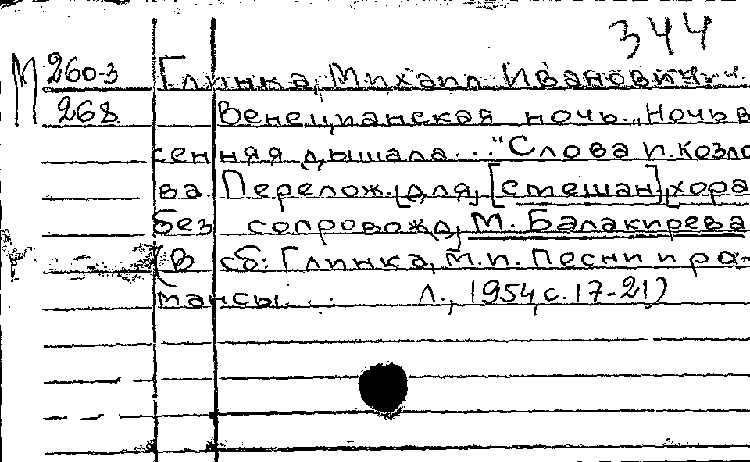 344
М 260-3 Глинка, Михаил Иванович.
268 Венецианская ночь. „Ночь в
сенняя дышала..." Слова И. Козло
ва. Перелож. для [смешан] хора
без сопровожд. М. Балакирева
(В сб: Глинка, М.И. Песни и ро-
мансы... Л., 1954, с. 17-21)